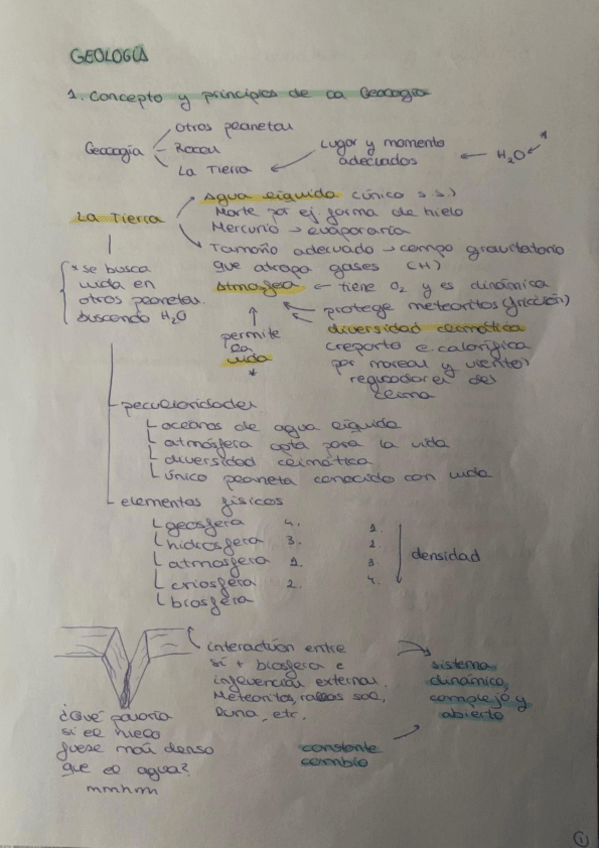 GEOLOGÍA
1. Concepto y principios de la Geología
Geología
Otros planetas
Rocas
La Tierra
Lugar y momento
adecuados
H₂O
*
La Tierra
Agua líquida (único s.s.)
Marte por ej. forma de hielo
Mercurio → evaporaría
Tamaño adecuado → campo gravitatorio
que atrapa gases (H)
Atmósfera ← tiene O₂ y es dinámica
protege meteoritos (fricción)
diversidad climática
(reparto e. calorífica
por mareas y viento)
reguladores del
clima
permite
la
vida
*
* se busca
vida en
otros planetas.
buscando H₂O
peculiaridades
océanos de agua líquida
atmósfera apta para la vida
diversidad climática
único planeta conocido con vida
elementos físicos
geosfera 4. 1.
hidrosfera 3. 2.
atmosfera 1. 3.
criosfera 2. 4.
biosfera
densidad
interacción entre
sí + biosfera e
influencias externas.
Meteoritos, rayos sol,
luna, etc.
sistema
dinámico,
complejo y
abierto
constante
cambio
¿Qué pasaría
si el hielo
fuese más denso
que el agua?
mmhm
1